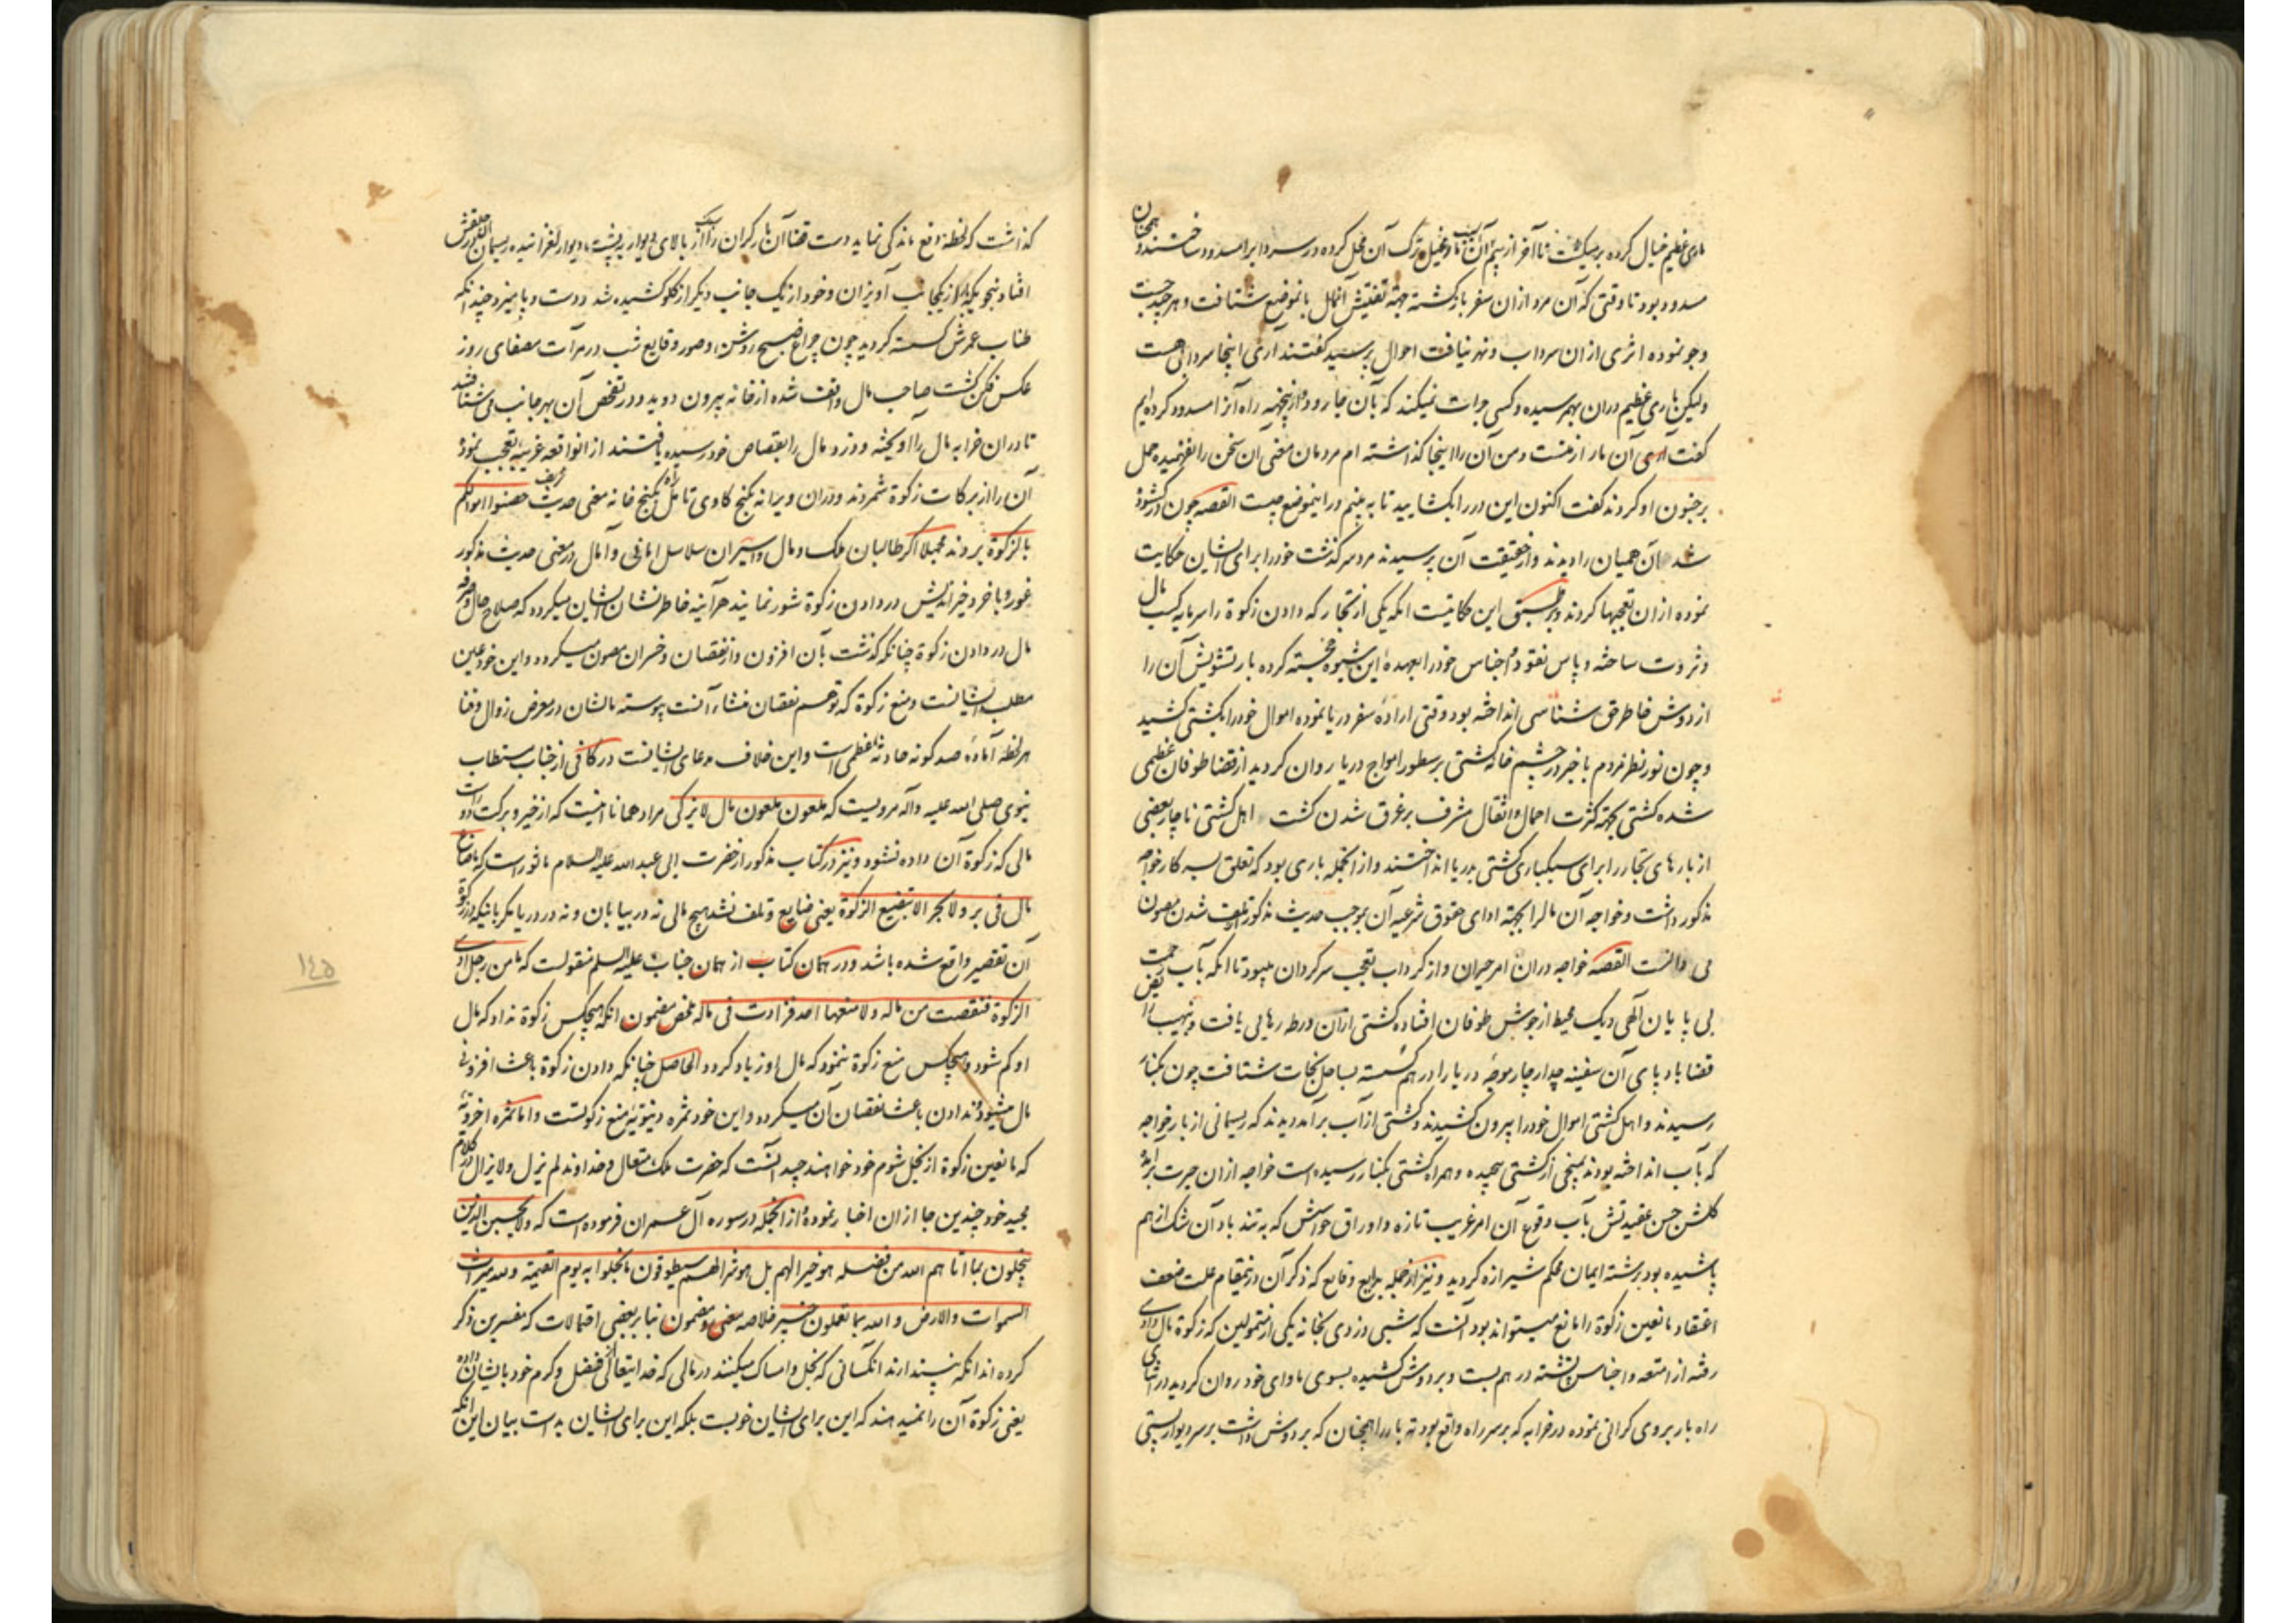 ماری عظیم خیال کرده برمیکشت تا آخر از بیم آن مار و تخیل ترک آن محل کرده در سرداب را مسدود ساختند و همچنان
مسدود بود تا وقتی که آن مرد از ان سفر بازکشته جهة تفتیش انمال بانموضع شتافت و هر چند جست
وجو نموده اثری از ان سرداب و نهر نیافت احوال پرسید کفتند اری اینجا سردابی هست
ولیکن ماری عظیم دران بهم رسیده و کسی جرات نمیکند که بآن جا رود و ازینجهة راه آنرا مسدود کرده ایم
کفت آری آن مار از منست و من آن را اینجا کذاشته ام مردمان معنی ان سخن را نفهمیده حمل
بر جنون او کردند کفت اکنون این در را بکشایید تا به بینم در اینموضع چیست القصه چون در کشوده
شد آن همیان را دیدند و از حقیقت آن پرسیدند مرد سرکذشت خود را برای ایشان حکایت
نموده ازان تعجبها کردند و بر طبق این حکایتست انکه یکی از تجار که دادن زکوة را سرمایه کسب مال
و ثروت ساخته و پاس نقود و اجناس خود را بعهدهٔ این شیوه خجسته کرده بار تشویش آن را
از دوش خاطر حق شناسی انداخته بود وقتی ارادهٔ سفر دریا نموده اموال خود را بکشتی کشید
و چون نور نظر مردم باخبر در چشم خانه کشتی بر سطور امواج دریا روان کردید از قضا طوفان عظیمی
شده کشتی بجهة کثرت احمال و اثقال مشرف بر غرق شدن کشت اهل کشتی ناچار بعضی
از بارهای تجار را برای سبکباری کشتی بدریا انداختند و از انجمله باری بود که تعلق بسرکار خواجه
مذکور داشت و خواجه آن مال را بجهة ادای حقوق شرعیه آن بموجب حدیث مذکور از تلف شدن مصون
می دانست القصه خواجه دران امر حیران و از کرداب تعجب سرکردان میبود تا انکه بآب رحمت
بی پایان آلهی دیک محیط از جوش طوفان افتاده کشتی ازان ورطه رهایی یافت و بنهیب
قضا باد پای آن سفینه چدار چار موجهٔ دریا را درهم شکسته بساحل نجات شتافت چون بکنار
رسیدند و اهل کشتی اموال خود را بیرون کشیدند و کشتی از آب برآمد دیدند که ریسمانی از بار خواجه
که بآب انداخته بودند بمیخی از کشتی پیچیده و همراه کشتی بکنار رسیده است خواجه ازان حیرت
کلشن حسن عقیدتش بآب وقوع آن امر غریب تازه و اوراق حواسش که به تندباد آن شک از هم
پاشیده بود برشته ایمان محکم شیرازه کردید و نیز از جمله بدایع وقایع که ذکر آن درینمقام علت ضعف
اعتقاد مانعین زکوة را مانع میتواند بود آنست که شبی دزدی بخانه یکی از متمولین که زکوة مال دادی
رفته از امتعه و اجناس پشته درهم بست و بر دوش کشیده بسوی ماوای خود روان کردید در اثنای
راه بار بروی کرانی نموده در خرابه که بر سر راه واقع بود ته بار را همچنان که بر دوش داشت بر سر دیوار پستی
کذاشت که لحظه دفع ماندکی نماید دست قضا آن بار کران را از بالای دیوار به پشت دیوار لغزانیده ریسمان در حلقش
افتاد بنحویکه بار از یکجانب آویزان و خود از یک جانب دیکر از کلو کشیده شد و دست و پا میزد چندانکه
طناب عمرش کسسته کردید چون چراغ صبح روشن و صور وقایع شب در مرآت مصفای روز
عکس فکن کشت صاحب مال واقف شده از خانه بیرون دوید و در تفحص آن بهر جانب می شتافتند
تا دران خرابه مال را آویخته و دزد مال را بقصاص خود رسیده یافتند از انواقعه غریبه تعجب نموده
آن را از برکات زکوة شمردند و دران ویرانه بکنج کاوی تامل راه بکنج خانه معنی حدیث شریف حصنوا اموالکم
بالزکوة بردند مجملا اکر طالبان ملک و مال و اسیران سلاسل امانی و آمال در معنی حدیث مذکور
غور و با خرد خیراندیش در دادن زکوة شور نمایند هرآینه خاطرنشان ایشان میکردد که صلاح حال و صرفه
مال در دادن زکوة چنانکه کذشت بآن افزون و از نقصان و خسران مصون میکردد و این خود عین
مطلب ایشانست و منع زکوة که توهم نقصان منشاء آنست پیوسته مالشان در معرض زوال و فنا
هر لحظه آمادهٔ صدکونه حادثهٔ عظمی است و این خلاف مدعای ایشانست در کافی از جناب مستطاب
نبوی صلی الله علیه و آله مرویست که ملعون ملعون مال لا یزکی مراد همانا اینست که از خیر و برکت دور است
مالی که زکوة آن داده نشود و نیز در کتاب مذکور از حضرت ابی عبدالله علیه السلام ماثورست که ما ضاع
مال فی بر ولا بحر الا بتضییع الزکوة یعنی ضایع و تلف نشد هیچ مالی نه در بیابان و نه در دریا مکر بانیکه در زکوة
آن تقصیر واقع شده باشد و در همان کتاب از همان جناب علیه السلم منقولست که ما من رجل ادی
الزکوة فنقصت من ماله ولا منعها احد فزادت فی ماله محض مضمون انکه هیچکس زکوة نداد که مال
او کم شود و هیچکس منع زکوة ننمود که مال او زیاد کردد الحاصل چنانکه دادن زکوة باعث افزونی
مال میشود ندادن باعث نقصان آن میکردد و این خود ثمره دنیویهٔ منع زکوتست و اما ثمره اخرویهٔ
که مانعین زکوة از نخل شوم خود خواهند چید آنست که حضرت ملک متعال و خداوند لم یزل و لا یزال در کلام
مجید خود چندین جا ازان اخبار نموده از انجمله در سوره آل عمران فرموده است که ولا یحسبن الذین
یبخلون بما اتاهم الله من فضله هو خیرا لهم بل هو شر لهم سیطوقون ما بخلوا به یوم القیمة و لله میراث
السموات والارض و الله بما تعملون خبیر خلاصه معنی و مضمون بنابر بعضی احتمالات که مفسرین ذکر
کرده اند انکه نپندارند انکسانی که بخل و امساک میکنند در مالی که خدایتعالی از فضل و کرم خود بایشان داده
یعنی زکوة آن را نمیدهند که این برای ایشان خوبست بلکه این برای ایشان بدست بیان این انکه
١٤٥